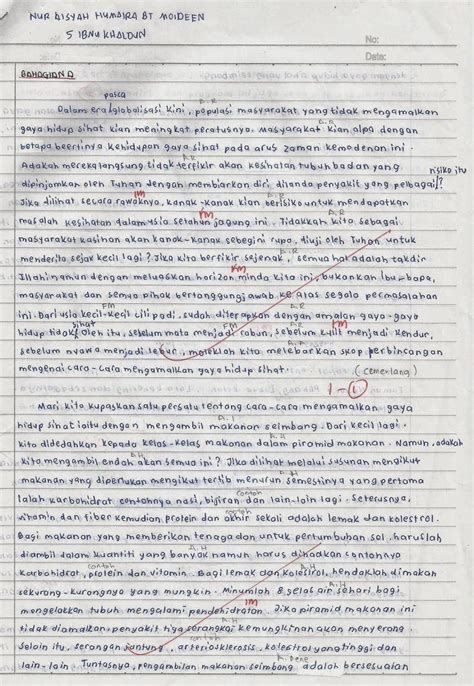 NUR AISYAH HUMAIRA BT MOIDEEN
5 IBNU KHALDUN
No:
Date:
BAHAGIAN D
pasca
Dalam era globalisasi kini, populasi masyarakat yang tidak mengamalkan
gaya hidup sihat kian meningkat peratusnya. Masyarakat kian alpa dengan
betapa beertinya kehidupan gaya sihat pada arus zaman kemodenan ini.
Adakah mereka langsung tidak terfikir akan kesihatan tubuh badan yang
risiko itu
dipinjamkan oleh Tuhan dengan membiarkan diri dilanda penyakit yang pelbagai?
Jika dilihat secara rawaknya, kanak-kanak kian berisiko untuk mendapatkan
masalah kesihatan dalam usia setahun jagung ini. Tidakkah kita sebagai
masyarakat kasihan akan kanak-kanak sebegini rupa, diuji oleh Tuhan untuk
menderita sejak kecil lagi? Jika kita berfikir sejenak, semua hal adalah takdir
Illahi namun dengan meluaskan horizon minda kita ini, bukankan ibu-bapa,
masyarakat dan semua pihak bertanggungjawab ke atas segala permasalahan
ini. Dari usia kecil-kecil cili padi, sudah diterapkan dengan amalan gaya-gaya
sihat
hidup tidak oleh itu, sebelum mata menjadi rabun, sebelum kulit menjadi kendur,
sebelum nyawa menjadi lebur, moleklah kita melebarkan skop perbincangan
mengenai cara-cara mengamalkan gaya hidup sihat.
(cemerlang)
Mari kita kupaskan satu persatu tentang cara-cara mengamalkan gaya
hidup sihat iaitu dengan mengambil makanan seimbang. Dari kecil lagi
kita didedahkan kepada kelas-kelas makanan dalam piramid makanan. Namun, adakah
kita mengambil endah akan semua ini? Jika dilihat melalui susunan mengikut
makanan yang diperlukan mengikut tertib menurun semestinya yang pertama
ialah karbohidrat contohnya nasi, bijiran dan lain-lain lagi. Seterusnya,
vitamin dan fiber kemudian protein dan akhir sekali adalah lemak dan kolestrol.
Bagi makanan yang memberikan tenaga dan untuk pertumbuhan sel haruslah
diambil dalam kuantiti yang banyak namun harus dihadkan contohnya
karbohidrat, protein dan vitamin. Bagi lemak dan kolestrol, hendaklah dimakan
sekurang-kurangnya yang mungkin. Minumlah 8 gelas air sehari bagi
mengelakkan tubuh mengalami pendehidratan. Jika piramid makanan ini
tidak diamalkan, penyakit tiga serangkai kemungkinan akan menyerang.
Selain itu, serangan jantung, arteriosklerosis, kolestrol yang tinggi dan
lain-lain. Tuntasnya, pengambilan makanan seimbang adalah bersesuaian